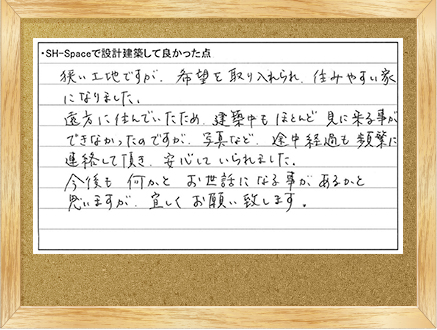 ・SH-Spaceで設計建築して良かった点
狭い土地ですが、希望を取り入れられ、住みやすい家
になりました。
遠方に住んでいたため、建築中もほとんど見に来る事が
できなかったのですが、写真など、途中経過も頻繁に
連絡して頂き、安心していられました。
今後も何かとお世話になる事があるかと
思いますが、宜しくお願い致します。